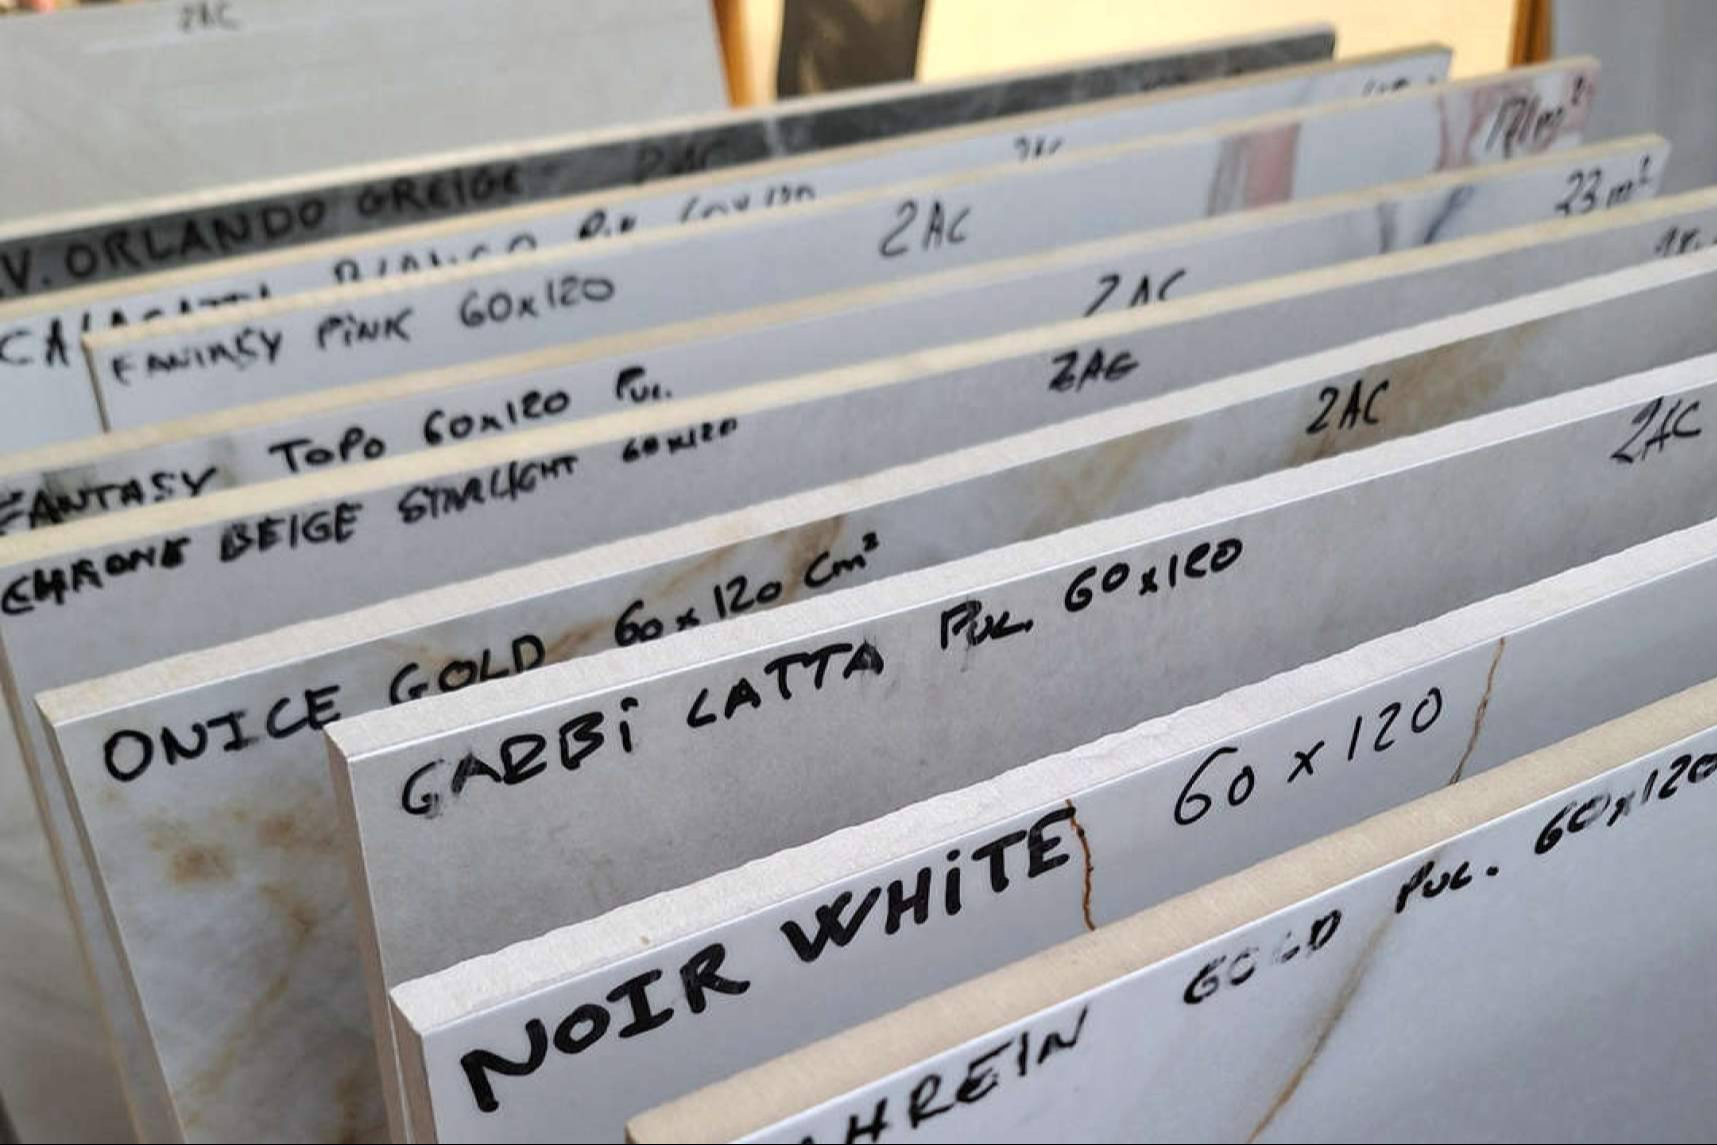 2AC
V. ORLANDO GREIGE 2AC
CALACATTA BIANCO 60x120
FANTASY PiNK 60x120 2AC 17/m²
FANTASY TOPO 60x120 PUL. 2AC 23 m²
CHROME BEIGE STARLIGHT 60x120 2AC
ONICE GOLD 60x120 Cm² 2AC
GARBi LATTA PUL. 60x120 2AC
NOIR WHiTE 60 x 120
AHREIN GOLD PUL. 60x120